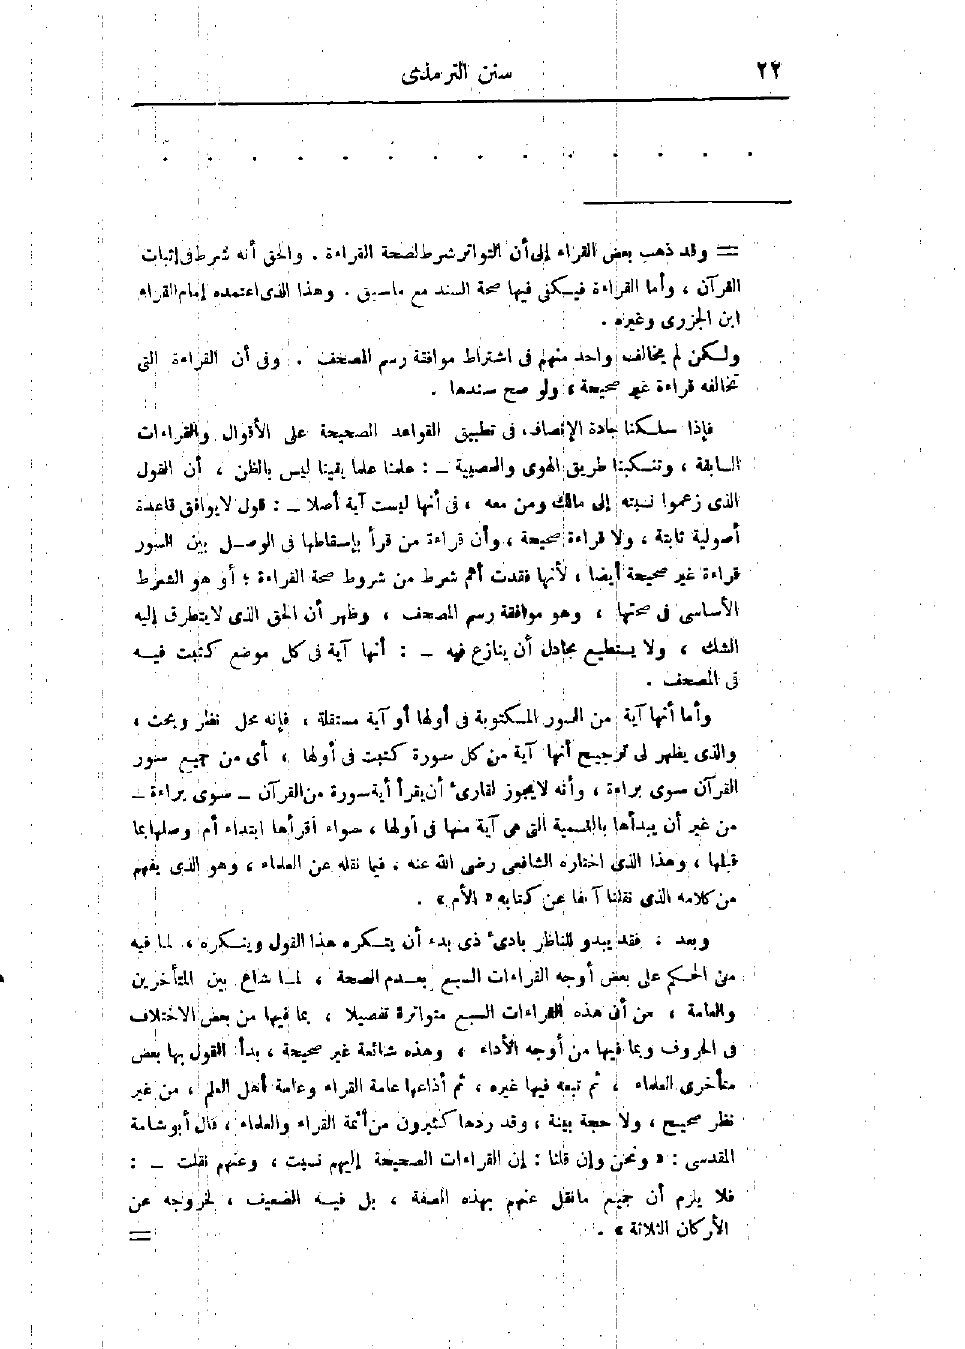 ٢٢
سنن الترمذى
= وقد ذهب بعض القراء إلى أن التواتر شرط لصحة القراءة . والحق أنه شرط فى إثبات
القرآن ، وأما القراءة فيكفى فيها صحة السند مع ماسبق . وهذا الذى اعتمده إمام القراء
ابن الجزرى وغيره .
ولكن لم يخالف واحد منهم فى اشتراط موافقة رسم المصحف . وفى أن القراءة التى
تخالفه قراءة غير صحيحة ، ولو صح سندها .
فإذا سلكنا جادة الإنصاف، فى تطبيق القواعد الصحيحة على الأقوال والقراءات
السابقة ، وتنكبنا طريق الهوى والعصبية ــ : علمنا علما يقينا ليس بالظن ، أن القول
الذى زعموا نسبته إلى مالك ومن معه ، فى أنها ليست آية أصلا ــ : قول لايوافق قاعدة
أصولية ثابتة ، ولا قراءة صحيحة ، وأن قراءة من قرأ بإسقاطها فى الوصل بين السور
قراءة غير صحيحة أيضا ، لأنها فقدت أهم شرط من شروط صحة القراءة ؛ أو هو الشرط
الأساسى فى صحتها ، وهو موافقة رسم المصحف ، وظهر أن الحق الذى لايتطرق إليه
الشك ، ولا يستطيع مجادل أن ينازع فيه ــ : أنها آية فى كل موضع كتبت فيه
فى المصحف .
وأما أنها آية من السور المكتوبة فى أولها أو آية مستقلة ، فإنه محل نظر وبحث ،
والذى يظهر لى ترجيح أنها آية من كل سورة كتبت فى أولها ، أى من جميع سور
القرآن سوى براءة ، وأنه لايجوز لقارئ أن يقرأ أية سورة من القرآن ــ سوى براءة ــ
من غير أن يبدأها بالتسمية التى هى آية منها فى أولها ، سواء أقرأها ابتداء أم وصلها بما
قبلها ، وهذا الذى اختاره الشافعى رضى الله عنه ، فيما نقله عن العلماء ، وهو الذى يفهم
من كلامه الذى نقلنا آنفا عن كتابه « الأم » .
وبعد ، فقد يبدو للناظر بادئ ذى بدء أن يتكره هذا القول وينكره ، لما فيه
من الحكم على بعض أوجه القراءات السبع بعدم الصحة ، لما شاع بين المتأخرين
والعامة ، من أن هذه القراءات السبع متواترة تفصيلا ، بما فيها من بعض الاختلاف
فى الحروف وبما فيها من أوجه الأداء ، وهذه شائعة غير صحيحة ، بدأ القول بها بعض
متأخرى العلماء ، ثم تبعه فيها غيره ، ثم أذاعها عامة القراء وعامة أهل العلم ، من غير
نظر صحيح ، ولا حجة بينة ، وقد ردها كثيرون من أئمة القراء والعلماء ، قال أبو شامة
المقدسى : « ونحن وإن قلنا : إن القراءات الصحيحة إليهم نسبت ، وعنهم نقلت ــ :
فلا يلزم أن جميع مانقل عنهم بهذه الصفة ، بل فيه الضعيف ، لخروجه عن
الأركان الثلاثة » . =